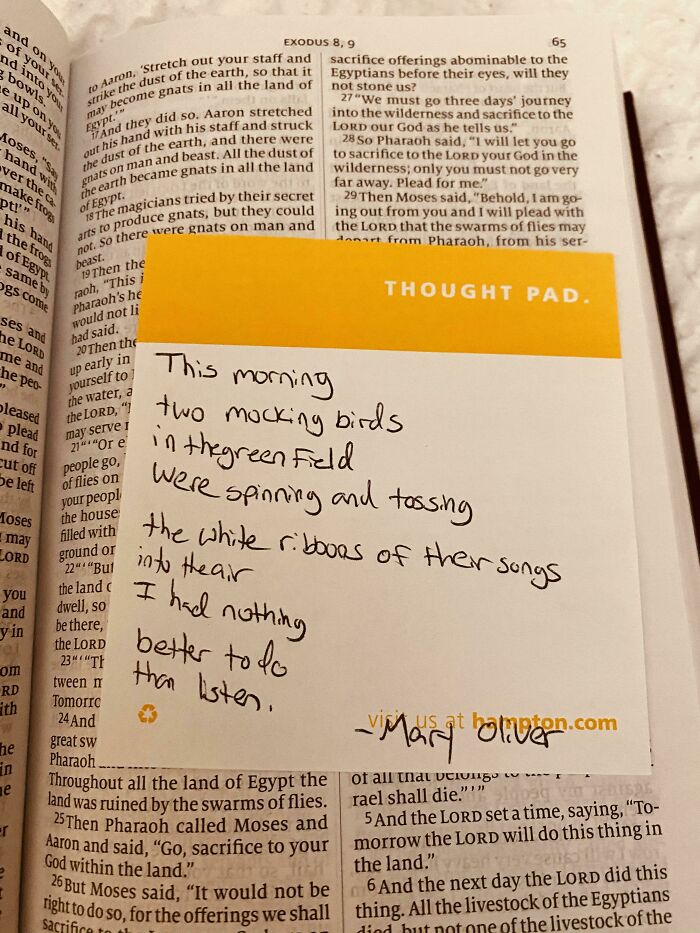 EXODUS 8, 9
65
and on you
of your ser-
nd into your
g bowls.
e up on you
all your ser-
Moses, "Say
hand with
over the ca-
make frogs
pt!'"
his hand
the frogs
of Egypt.
same by
ogs come
ses and
he LORD
me and
he peo-
pleased
plead
nd for
cut off
be left
Moses
may
LORD
you
and
y in
om
RD
ith
he
in
ne
to Aaron, 'Stretch out your staff and
strike the dust of the earth, so that it
may become gnats in all the land of
Egypt.'"
17And they did so. Aaron stretched
out his hand with his staff and struck
the dust of the earth, and there were
gnats on man and beast. All the dust of
the earth became gnats in all the land
of Egypt.
18The magicians tried by their secret
arts to produce gnats, but they could
not. So there were gnats on man and
beast.
19Then the
raoh, "This i
Pharaoh's he
would not li
had said.
20Then the
up early in
yourself to
the water, a
the LORD, "
may serve
21"'"Or e
people go,
of flies on
your peopl
the house
filled with
ground or
22"'"But
the land o
dwell, so
be there,
the LORD
23"'"Th
tween m
Tomorro
24And
great sw
Pharaoh
Throughout all the land of Egypt the
land was ruined by the swarms of flies.
25Then Pharaoh called Moses and
Aaron and said, "Go, sacrifice to your
God within the land."
26But Moses said, "It would not be
right to do so, for the offerings we shall
sacrifice to
sacrifice offerings abominable to the
Egyptians before their eyes, will they
not stone us?
27"We must go three days' journey
into the wilderness and sacrifice to the
LORD our God as he tells us."
28So Pharaoh said, "I will let you go
to sacrifice to the LORD your God in the
wilderness; only you must not go very
far away. Plead for me."
29Then Moses said, "Behold, I am go-
ing out from you and I will plead with
the LORD that the swarms of flies may
depart from Pharaoh, from his ser-
THOUGHT PAD.
This morning
two mocking birds
in the green field
Were spinning and tossing
the white ribbons of their songs
into the air
I had nothing
better to do
than listen.
visit us at hampton.com
-Mary Oliver
of all that belongs to the
rael shall die."'"
5And the LORD set a time, saying, "To-
morrow the LORD will do this thing in
the land."
6And the next day the LORD did this
thing. All the livestock of the Egyptians
died, but not one of the livestock of the